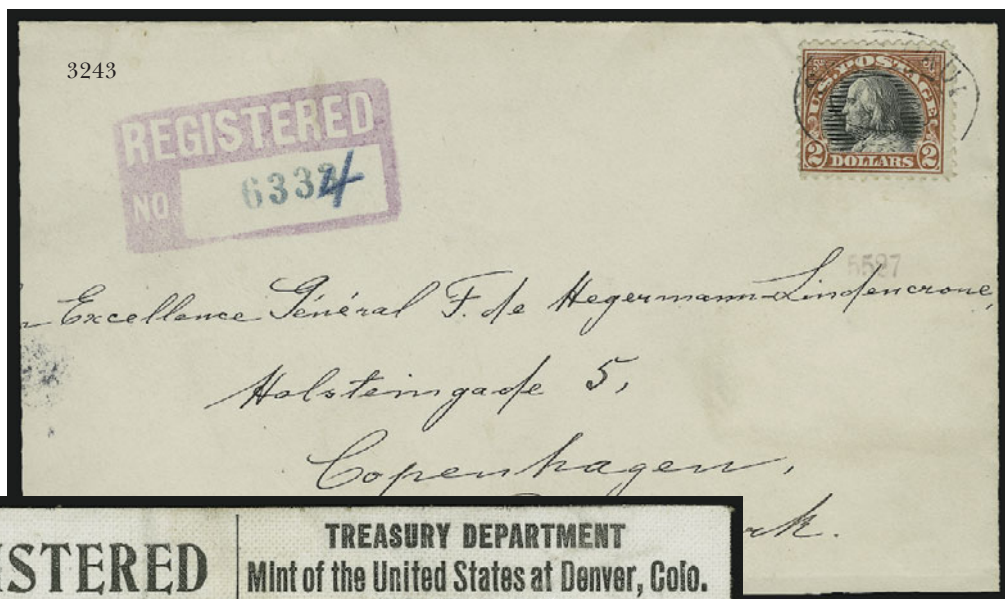 3243
REGISTERED
NO 6332/
U.S. POSTAGE
2 DOLLARS 2
5597
Excellence Général F. de Hegermann-Lindencrone,
Holsteingade 5,
Copenhagen,
rk.
ISTERED
TREASURY DEPARTMENT
Mint of the United States at Denver, Colo.